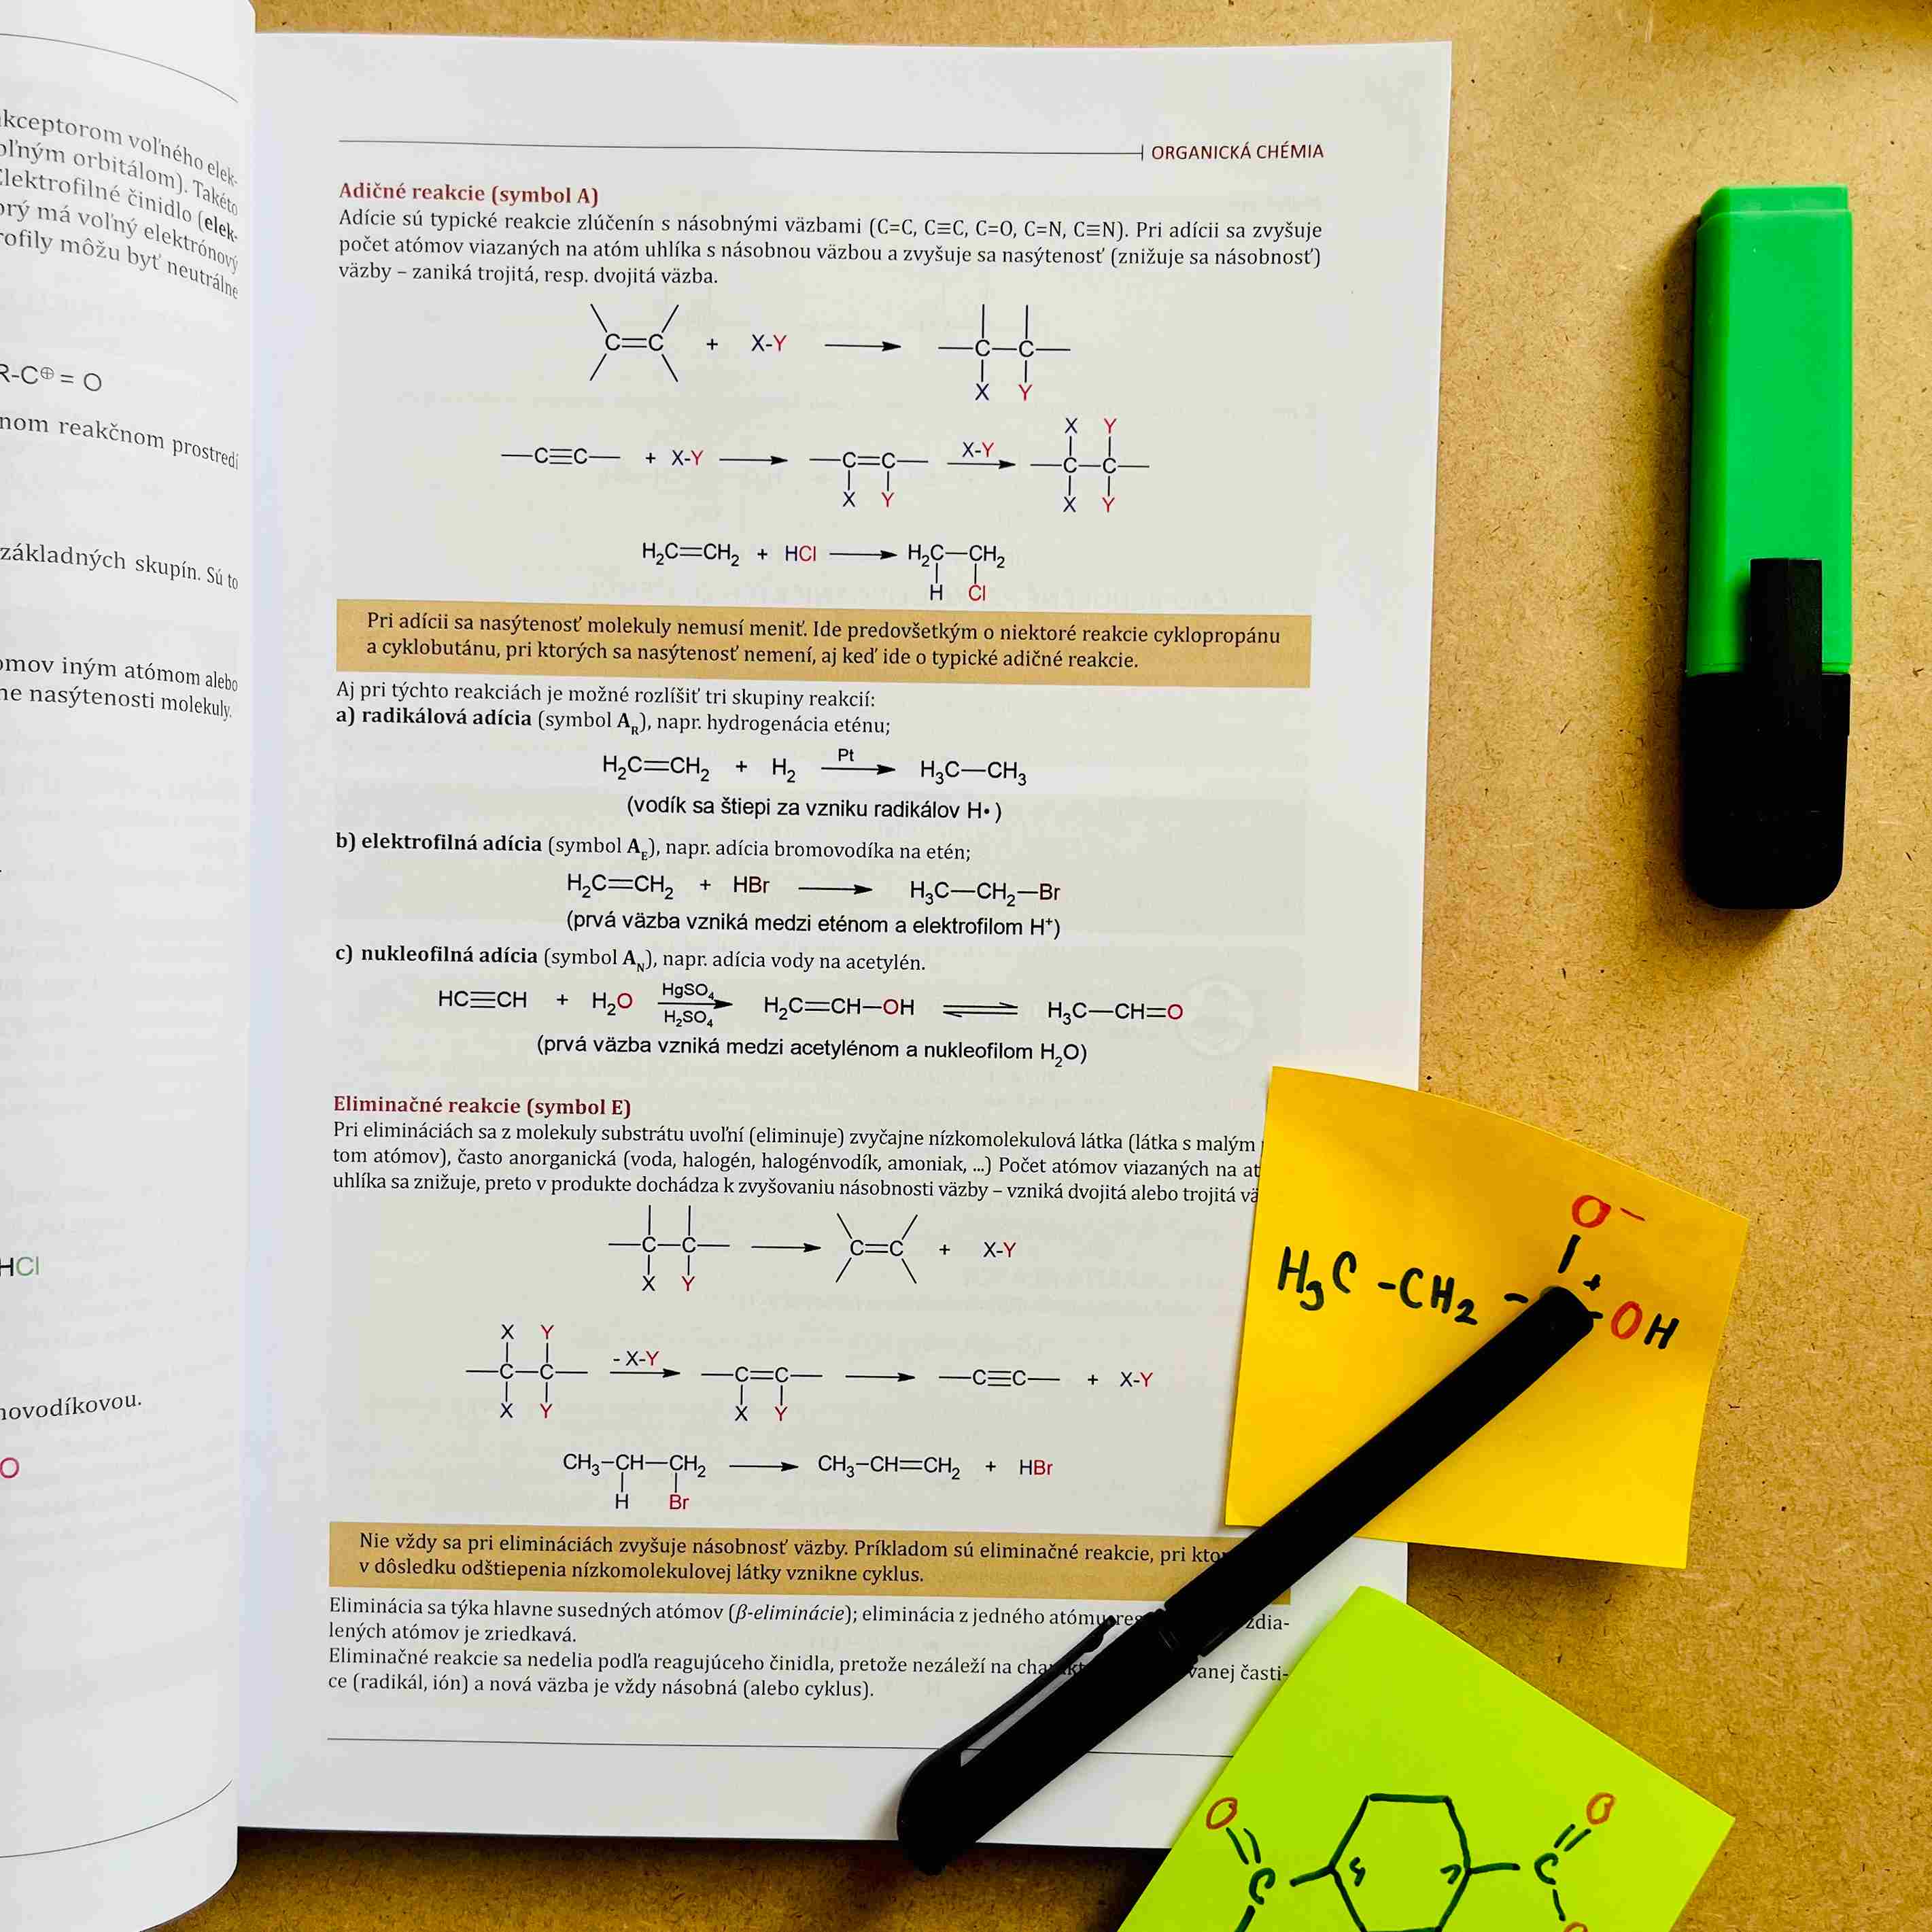 voľného elek-
orbitálom). Takéto
činidlo (elek-
má voľný elektrónový
môžu byť neutrálne
R-C⊕ = O
reakčnom prostredí
základných skupín. Sú to
iným atómom alebo
nasýtenosti molekuly.
HCl
O
ORGANICKÁ CHÉMIA
Adičné reakcie (symbol A)
Adície sú typické reakcie zlúčenín s násobnými väzbami (C=C, C≡C, C=O, C=N, C≡N). Pri adícii sa zvyšuje
počet atómov viazaných na atóm uhlíka s násobnou väzbou a zvyšuje sa nasýtenosť (znižuje sa násobnosť)
väzby – zaniká trojitá, resp. dvojitá väzba.
C=C + X-Y → —C—C—
X Y
X Y
—C≡C— + X-Y → —C=C— X-Y → —C—C—
X Y X Y
H₂C=CH₂ + HCl → H₂C—CH₂
H Cl
Pri adícii sa nasýtenosť molekuly nemusí meniť. Ide predovšetkým o niektoré reakcie cyklopropánu
a cyklobutánu, pri ktorých sa nasýtenosť nemení, aj keď ide o typické adičné reakcie.
Aj pri týchto reakciách je možné rozlíšiť tri skupiny reakcií:
a) radikálová adícia (symbol A_R), napr. hydrogenácia eténu;
H₂C=CH₂ + H₂ Pt → H₃C—CH₃
(vodík sa štiepi za vzniku radikálov H•)
b) elektrofilná adícia (symbol A_E), napr. adícia bromovodíka na etén;
H₂C=CH₂ + HBr → H₃C—CH₂—Br
(prvá väzba vzniká medzi eténom a elektrofilom H⁺)
c) nukleofilná adícia (symbol A_N), napr. adícia vody na acetylén.
HC≡CH + H₂O HgSO₄ → H₂SO₄ H₂C=CH—OH ⇌ H₃C—CH=O
(prvá väzba vzniká medzi acetylénom a nukleofilom H₂O)
Eliminačné reakcie (symbol E)
Pri elimináciách sa z molekuly substrátu uvoľní (eliminuje) zvyčajne nízkomolekulová látka (látka s malým
tom atómov), často anorganická (voda, halogén, halogénvodík, amoniak, ...) Počet atómov viazaných na
uhlíka sa znižuje, preto v produkte dochádza k zvyšovaniu násobnosti väzby – vzniká dvojitá alebo trojitá
—C—C— → C=C + X-Y
X Y
X Y
—C—C— - X-Y → —C=C— → —C≡C— + X-Y
X Y X Y
CH₃–CH—CH₂ → CH₃–CH=CH₂ + HBr
H Br
Nie vždy sa pri elimináciách zvyšuje násobnosť väzby. Príkladom sú eliminačné reakcie, pri
v dôsledku odštiepenia nízkomolekulovej látky vznikne cyklus.
Eliminácia sa týka hlavne susedných atómov (β-eliminácie); eliminácia z jedného atómu zdia-
lených atómov je zriedkavá.
Eliminačné reakcie sa nedelia podľa reagujúceho činidla, pretože nezáleží na vanej časti-
ce (radikál, ión) a nová väzba je vždy násobná (alebo cyklus).
O⁻
+
H₃C -CH₂ - -OH
O O
C C